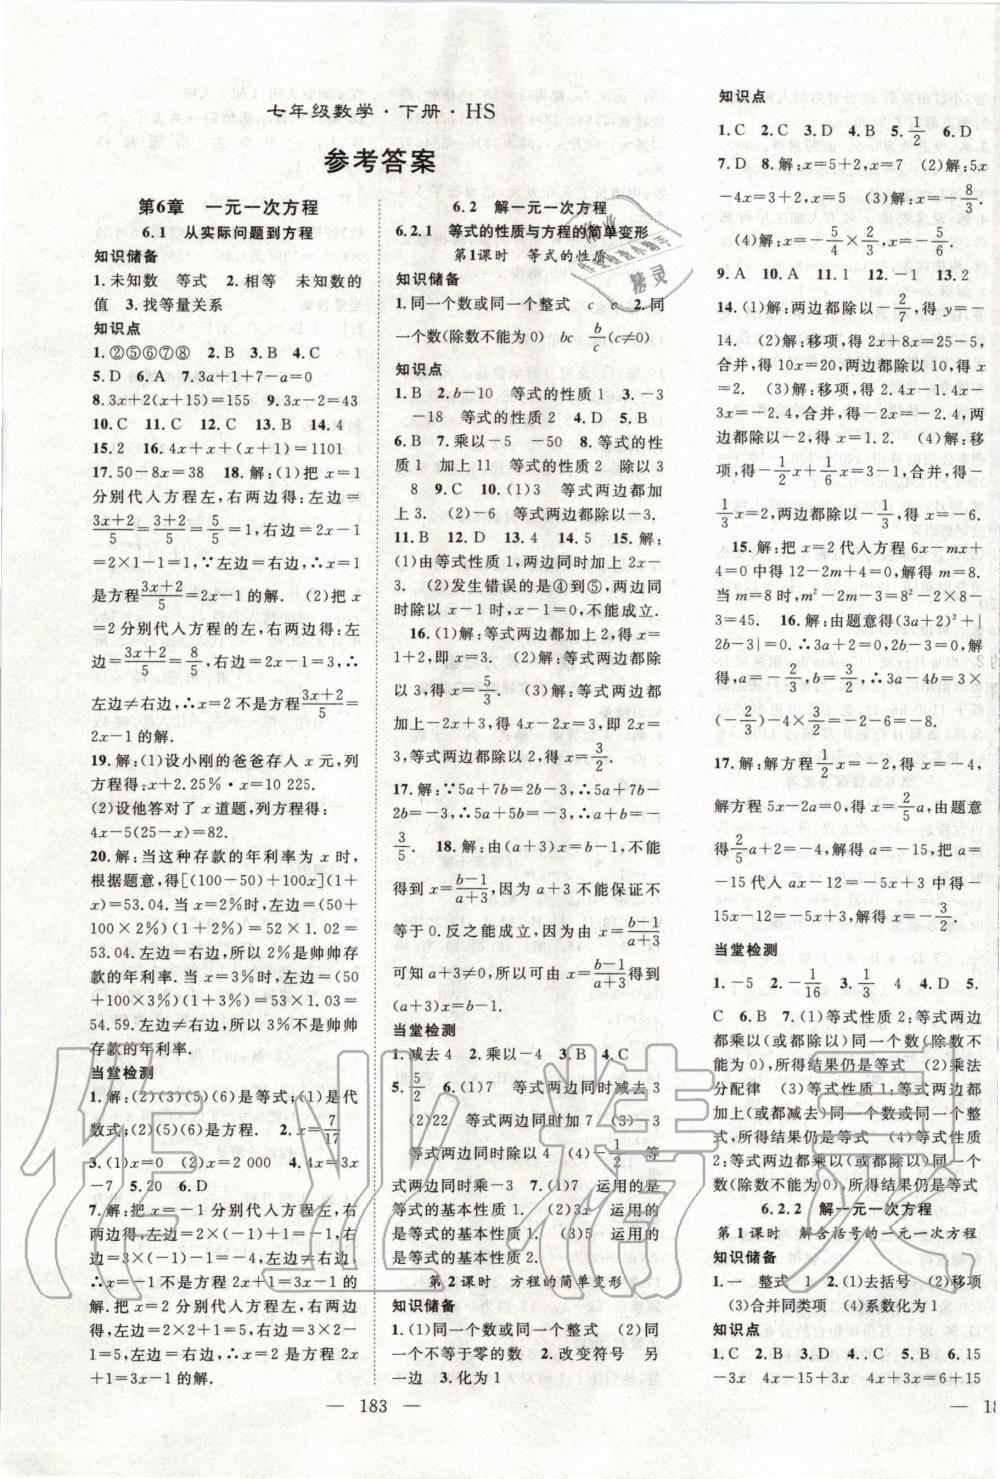 七年级数学·下册·HS
参考答案
第6章　一元一次方程
6.1　从实际问题到方程
知识储备
1.未知数　等式　2.相等　未知数的
值　3.找等量关系
知识点
1.②⑤⑥⑦⑧　2.B　3.B　4.C
5.D　6.A　7.3a+1+7-a=0
8.3x+2(x+15)=155　9.3x-2=43
10.C　11.C　12.C　13.B　14.4
15.2　16.4x+x+(x+1)=1101
17.50-8x=38　18.解:(1)把 x=1
分别代入方程左,右两边得:左边=
(3x+2)/5=(3+2)/5=5/5=1,右边=2x-1
=2×1-1=1,左边=右边,∴x=1
是方程(3x+2)/5=2x-1的解.　(2)把x
=2分别代入方程左,右两边得:左
边=(3x+2)/5=8/5,右边=2x-1=3,∴
左边≠右边,∴x=2不是方程(3x+2)/5=
2x-1的解.
19.解:(1)设小刚的爸爸存入 x 元,列
方程得:x+2.25%·x=10 225.
(2)设他答对了 x 道题,列方程得:
4x-5(25-x)=82.
20.解:当这种存款的年利率为 x 时,
根据题意,得[(100-50)+100x](1+
x)=53.04.当x=2%时,左边=(50+
100×2%)(1+2%)=52×1.02=
53.04.左边=右边,所以2%是帅帅存
款的年利率.当x=3%时,左边=(50
+100×3%)(1+3%)=53×1.03=
54.59.左边≠右边,所以3%不是帅帅
存款的年利率.
当堂检测
1.解:(2)(3)(5)(6)是等式;(1)是代
数式;(2)(5)(6)是方程.　2.x=7/17
3.(1)x=0　(2)x=2 000　4.4x=3x
-7　5.20　6.D
7.解:把x=1分别代入方程左、右两
边得:左边=2×1=2,右边=1+2=3,
∴x=1不是方程2x=x+2的解;把x
=2分别代入方程左、右两边得:左
边=2×2=4,右边=2+2=4,∴左
边=右边,∴x=2是方程2x=x+2
的解.
6.2　解一元一次方程
6.2.1　等式的性质与方程的简单变形
第1课时　等式的性质
知识储备
1.同一个数或同一个整式　c　c　2.同
一个数(除数不能为0)　bc　b/c(c≠0)
知识点
1.B　2.b-10　等式的性质1　3.-3
-18　等式的性质2　4.D　5.B
6.B　7.乘以-5　-50　8.等式的性
质1　加上11　等式的性质2　除以3
8　9.C　10.(1)3　等式两边都加
上3.　(2)-6　等式两边都除以-3.
11.B　12.D　13.4　14.5　15.解:
(1)由等式性质1,两边同时加上2.
(2)发生错误的是④到⑤,两边同
时除以x-1时,x-1=0,不能成立.
16.(1)解:等式两边都加上2,得x=
1+2,即x=3.　(2)解:等式两边都除
以3,得x=5/3.　(3)解:等式两边都
加上2-2x,得4x-2x=3,即2x=3,
等式两边都除以2,得x=3/2.
17.解:∵5a+7b=2b-3,∴5a+7b-
2b=-3,∴5a+5b=-3,∴a+b=-
3/5.　18.解:由(a+3)x=b-1,不能
得到x=(b-1)/(a+3),因为 a+3 不能保证不
等于0.反之能成立,因为由x=(b-1)/(a+3)
可知 a+3≠0,所以由x=(b-1)/(a+3)得到
(a+3)x=b-1.
当堂检测
1.减去4　2.乘以-4　3.B　4.C
5.5/2　6.(1)7　等式两边同时减去3
(2)22　等式两边同时加7　(3)-3
等式两边同时除以2　(4)-1/2　等
式两边同时乘-3　7.(1)1　运用的是
等式的基本性质1.　(2)3x　运用的
是等式的基本性质2.　(3)5　运用的
是等式的基本性质2.
第2课时　方程的简单变形
知识储备
1.(1)同一个数或同一个整式　(2)同
一个不等于零的数　2.改变符号　另
一边　3.化为1
知识点
1.C　2.C　3.D　4.B　5.1/2　6.D
7.D　8.解:x=5+2,x=7　(2)解:5x
-4x=3+2,x=5　(3)解:x=-8/3
(4)解:x=-5/4×2/3,x=-5/6.
9.A　10.A　11.1　12.-1　13.2
14.(1)解:两边都除以-2/7,得 y=-
14.　(2)解:移项,得2x+8x=25-5,
合并,得10x=20,两边都除以10,得x
=2.　(3)解:移项,得2.4x-1.4x-
3x=-2.4,合并,得-2x=-2.4,两
边都除以-2,得x=1.2.　(4)解:移
项,得-1/2x+1/6x=-1-1,合并,得-
1/3x=2,两边都除以-1/3,得x=-6.
15.解:把x=2代入方程6x-mx+
4=0中,得12-2m+4=0,解得m=8.
当m=8时,m²-2m-3=8²-2×8-
3=45.　16.解:由题意得(3a+2)²+|
2b-3|=0.∴3a+2=0,2b-3=0,解
得,a=-2/3,b=3/2,∴3a-4b=3×
(-2/3)-4×3/2=-2-6=-8.
17.解:解方程1/2x=-2,得x=-4,
解方程5x-2a=0,得x=2/5a,由题意
得2/5a+2=-4,得a=-15,把a=
-15代入ax-15=0,得:
-15x-15=0,解得x=-1.
当堂检测
1.-5　2.-1/16　3.1/3　4　4.D　5.
C　6.B　7.(1)等式性质2:等式两边
都乘以(或都除以)同一个数(除数不
能为0),所得结果仍是等式　(2)乘法
分配律　(3)等式性质1:等式两边都
加上(或都减去)同一个数或同一个整
式,所得结果仍是等式　(4)等式性质
2:等式两边都乘以(或都除以)同一个数
(除数不能为0),所得结果仍是等式
6.2.2　解一元一次方程
第1课时　解含括号的一元一次方程
知识储备
1.一　整式　1　2.(1)去括号　(2)移项
(3)合并同类项　(4)系数化为1
知识点
1.C　2.B　3.D　4.C　5.B　6.15
-3x　4x+2
— 183 —
作业精灵